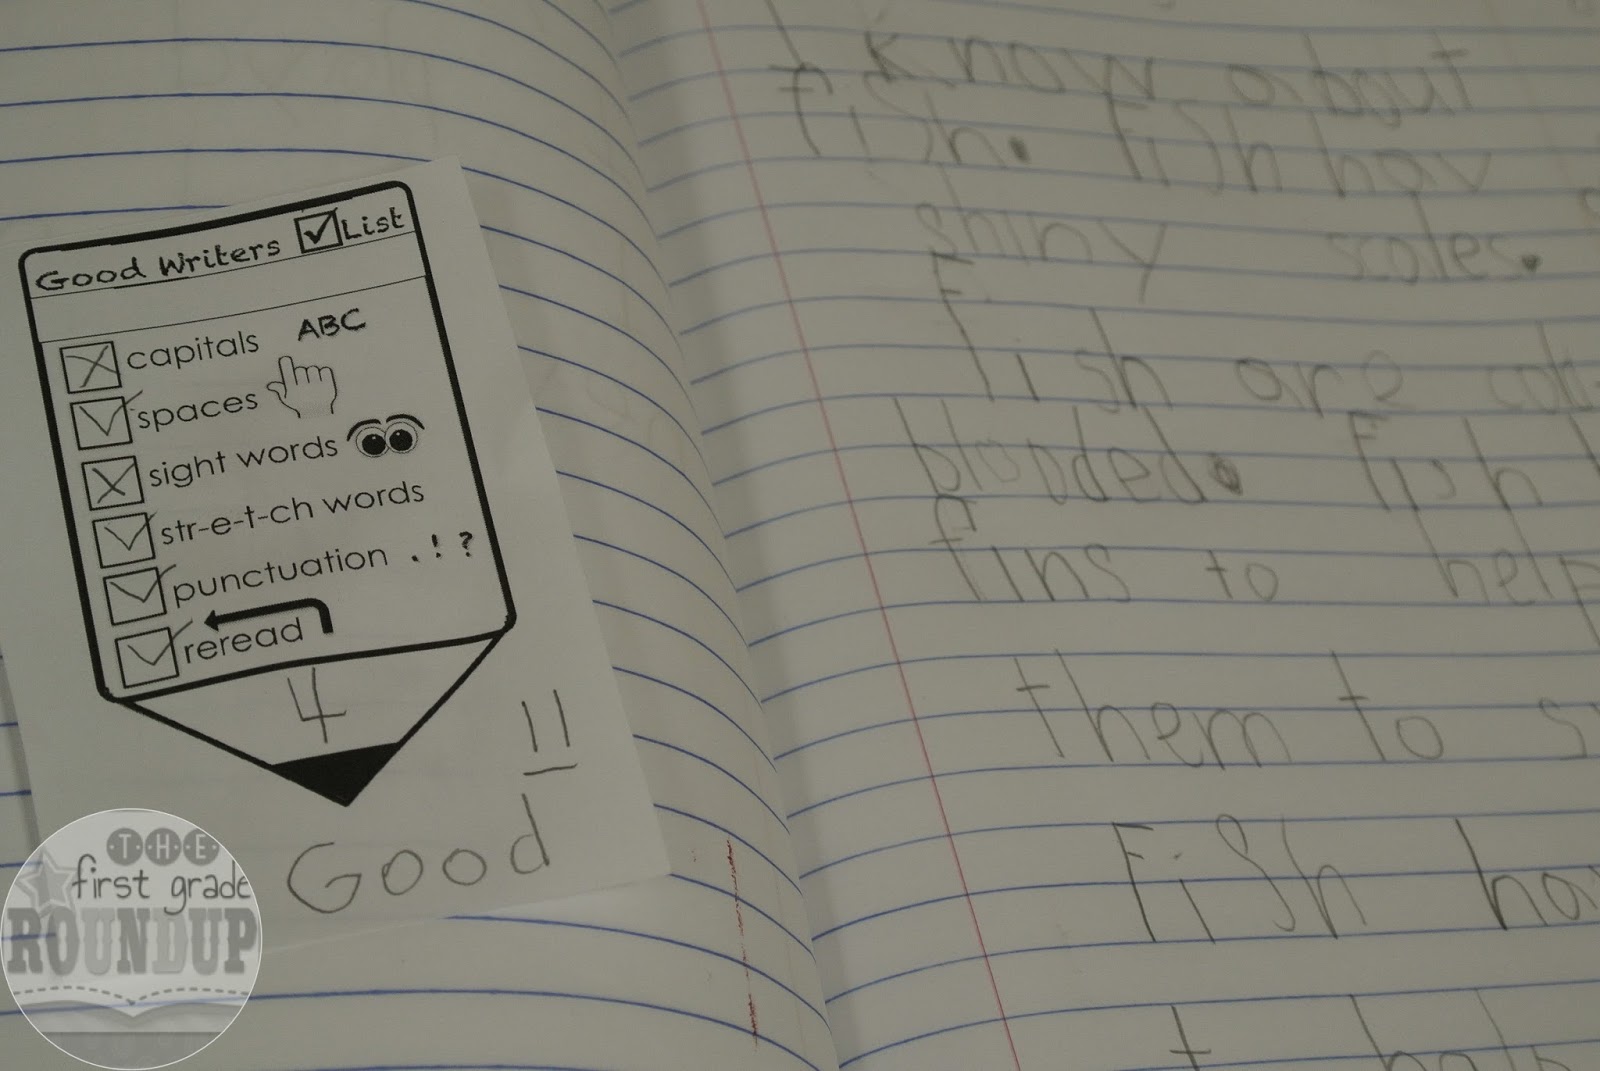 Good Writers List
capitals ABC
spaces
sight words
str-e-t-ch words
punctuation . ! ?
reread
4
11
Good
THE
first grade
ROUNDUP
I know about
fish. Fish hav
shiny scales.
Fish are
blooded. Fish
fins to help
them to
Fish
t